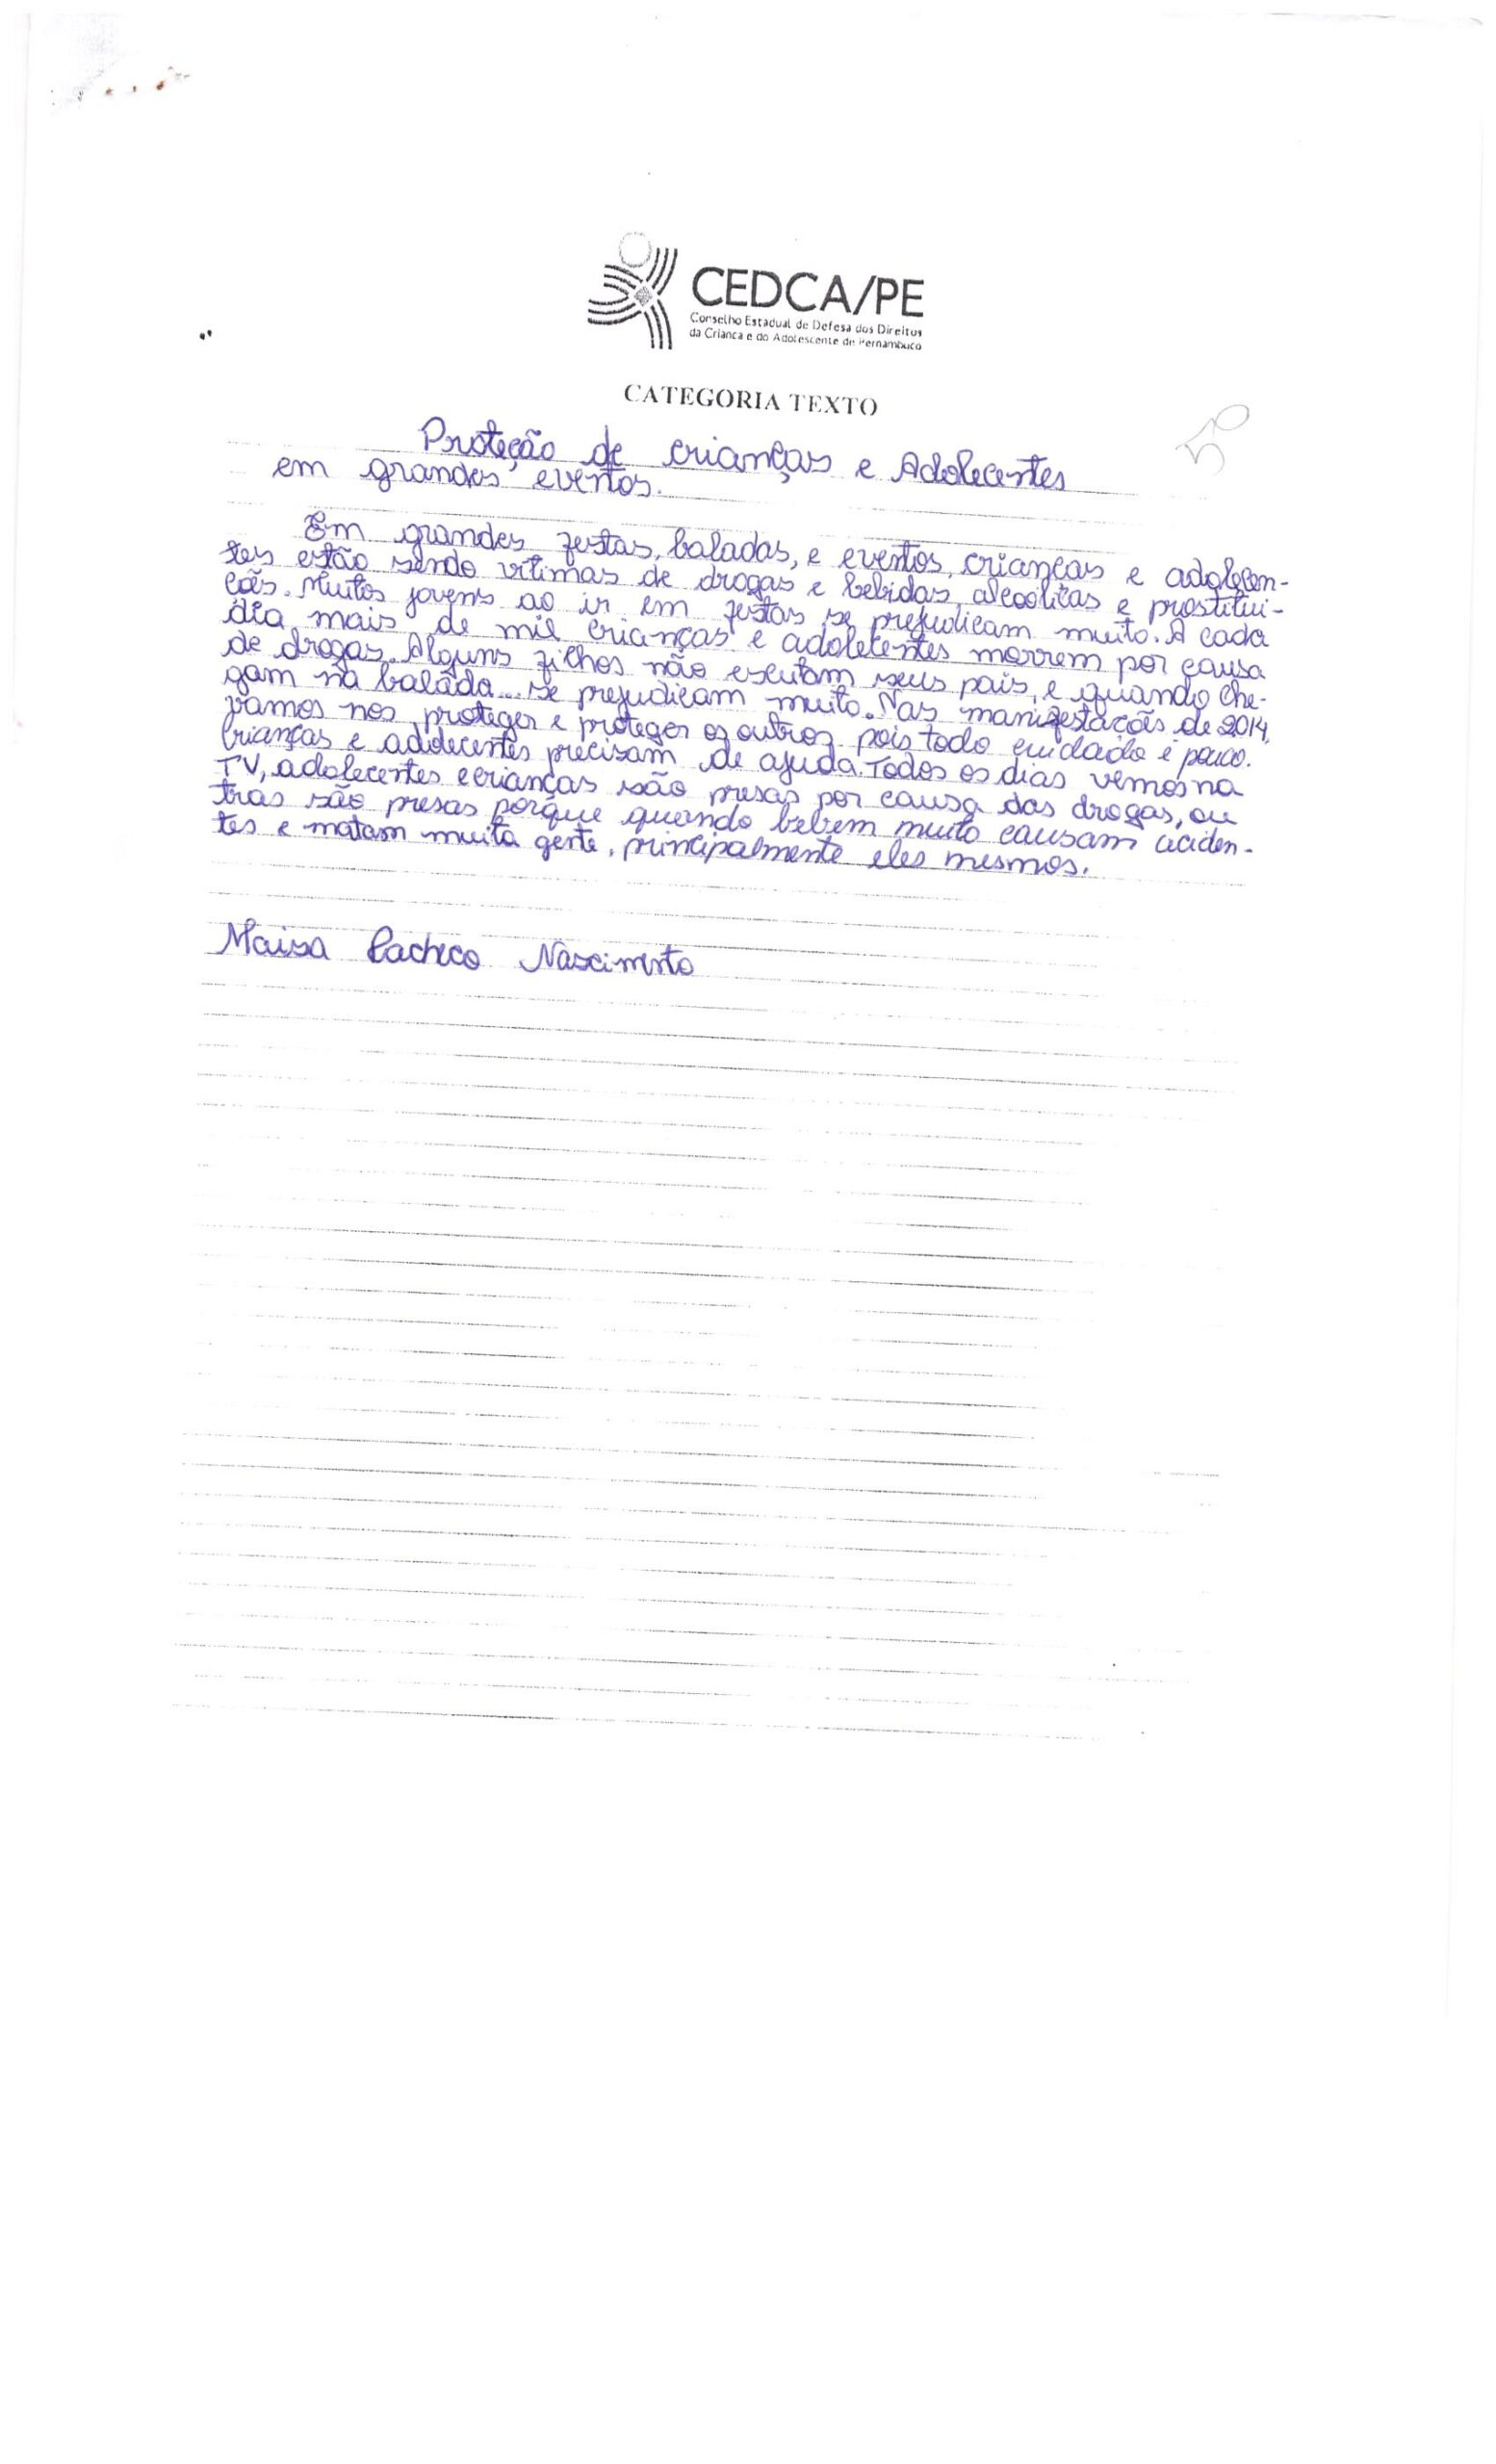 CEDCA/PE
Conselho Estadual de Defesa dos Direitos
da Criança e do Adolescente de Pernambuco
CATEGORIA TEXTO
5º
Proteção de crianças e Adolecentes
em grandes eventos.
Em grandes festas, baladas, e eventos, crianças e adoleçen-
tes estão sendo vitimas de drogas e bebidas alcoolicas e prostitui-
ções. Muitos jovens ao ir em festas se prejudicam muito. A cada
dia mais de mil crianças e adolecentes morrem por causa
de drogas. Alguns filhos não escutam seus pais, e quando che-
gam na balada se prejudicam muito. Nas manifestações de 2014,
vamos nos proteger e proteger os outros, pois todo cuidado é pouco.
Crianças e adolecentes precisam de ajuda. Todos os dias vemos na
TV, adolecentes e crianças são presas por causa das drogas, ou
tras são presas porque quando bebem muito causam aciden-
tes e matam muita gente, principalmente eles mesmos.
Maisa Pacheco Nascimento